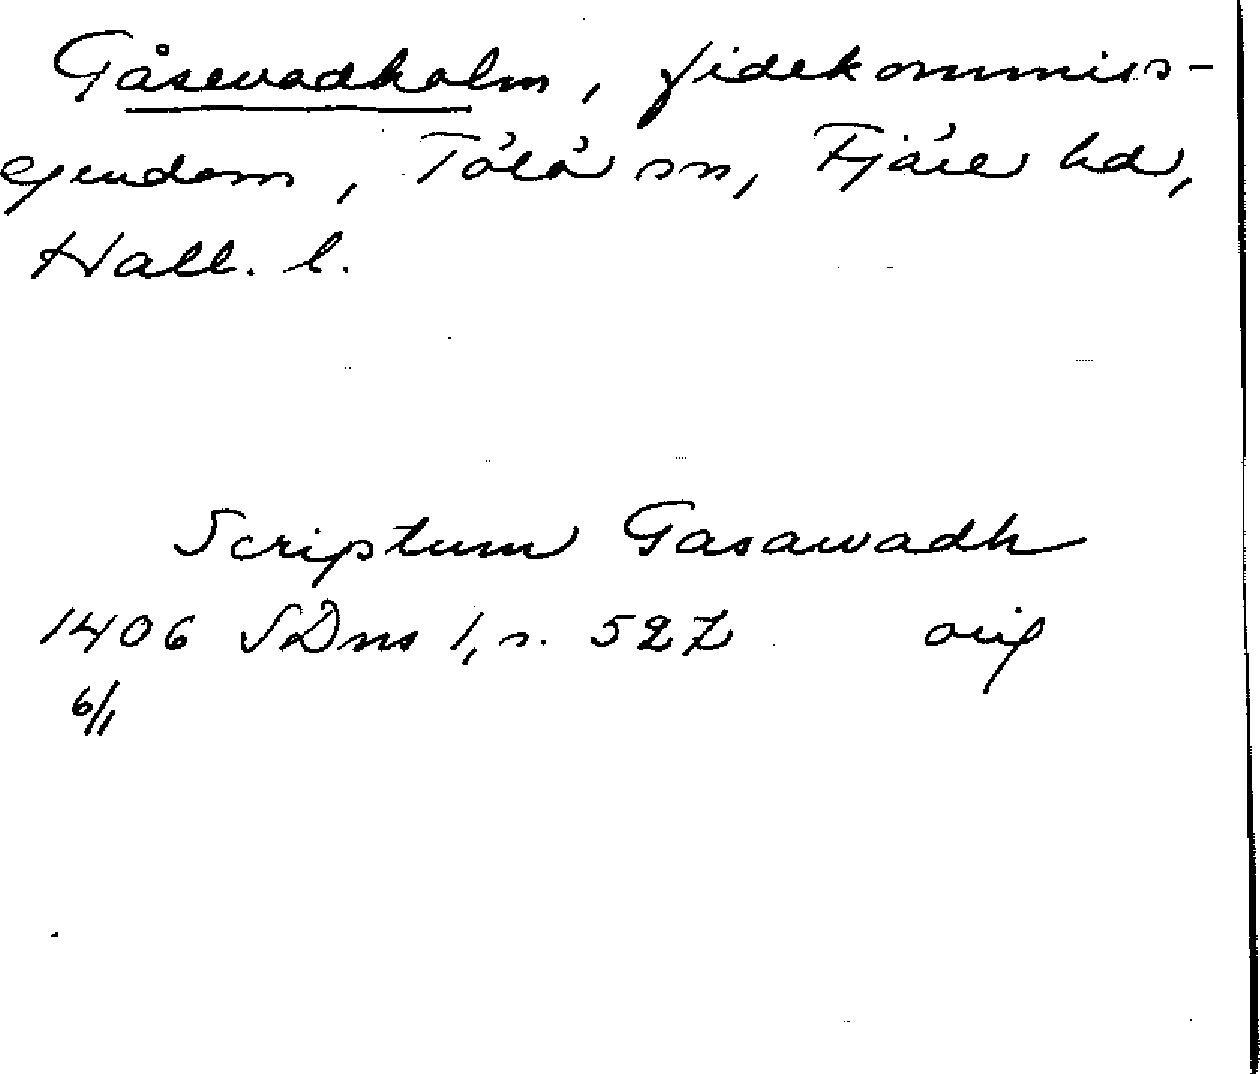 Gåsevadholm, fidekommiss-
egendom, Tölö sn, Fjäre hd,
Hall. l.
Scriptum Gasawadh
1406 SDns 1, s. 527 orig
6/1